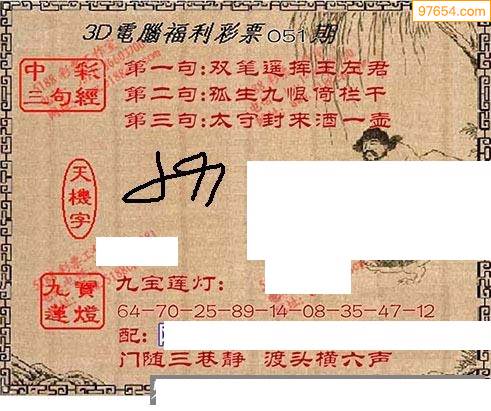 97654.com
3D電腦福利彩票051期
中彩
三句經
第一句:双笔遥挥王左君
第二句:孤生九恨倚栏干
第三句:太守封来酒一壶
天機字
九寶
蓮燈
九宝莲灯:
64-70-25-89-14-08-35-47-12
配:
门随三巷静 渡头横六声